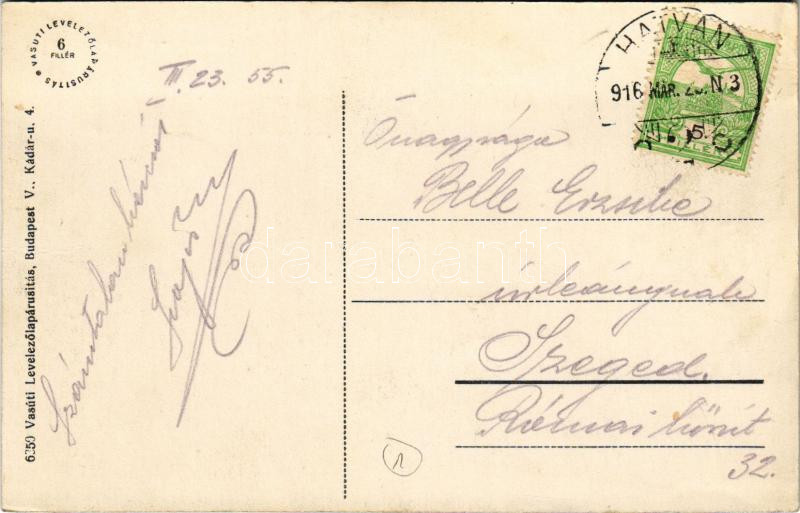 VASUTI LEVELEZŐLAPÁRUSITÁS
6
FILLÉR
III. 23. 55.
6350 Vasúti Levelezőlapárusitás, Budapest V., Kádár-u. 4.
Számtalan
HATVAN
916 MÁR. 23. N 3
5
FILLÉR
Őnagysága
Belle Erzsike
úrleánynak
Szeged.
Római körút
32.
1
darabanth